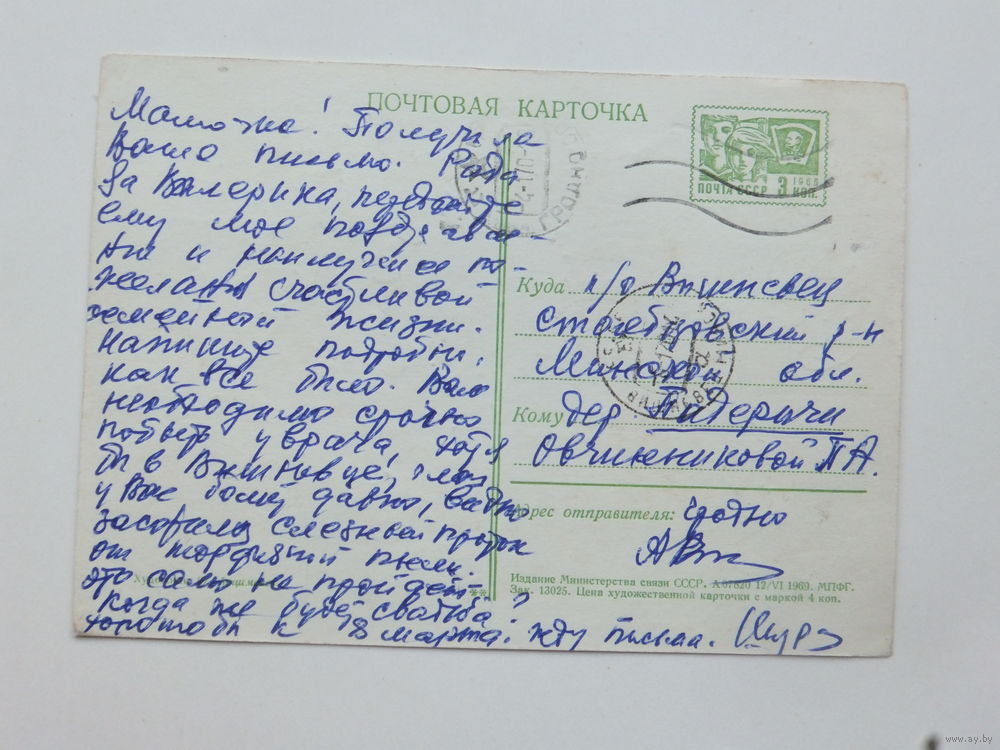 ПОЧТОВАЯ КАРТОЧКА
Мамочка! Получила
Ваше письмо. Рада
за Валерика, передайте
ему мое поздравле-
ния и наилучшие по-
желания счастливой
семейной жизни.
Напишите подробно,
как все было. Вам
необходимо срочно
побыть у врача, хотя
бы в Вишневце, глаз
у Вас болит давно, видно
засорили слезный проток
от торфяной пыли.
это само не пройдет
Когда же будет свадьба?
хорошо бы к 8 марта. Жду письма.
ПОЧТА СССР 1968 3 КОП.
ГРОДНО
Куда п/о Вишневец
Столбцовский р-н
Минской обл.
Кому дер Титеричи
Овчинниковой П А.
Адрес отправителя: Гродно
Издание Министерства связи СССР. А 07820 12/VI 1969. МПФГ.
Зак. 13025. Цена художественной карточки с маркой 4 коп.
www.ay.by